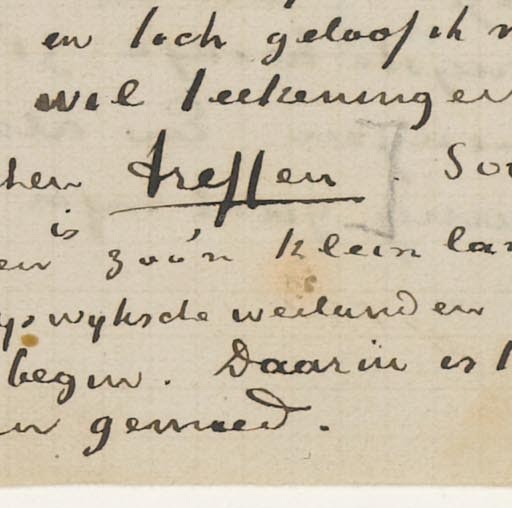 en toch geloof ik
wil teekeningen
treffen.
is
zoo'n klein lan
yswyksche weilanden
begin. Daarin is
gemoed.